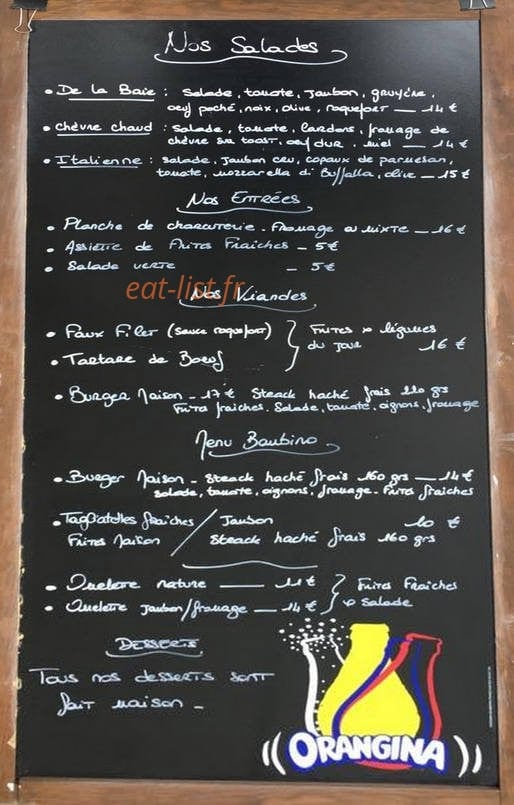 Nos Salades
• De la Baie : Salade, tomate, Jambon, gruyère,
oeuf poché, noix, olive, roquefort — 14 €
• chèvre chaud : Salade, tomate, lardons, fromage de
chèvre sur toast, oeuf dur, miel — 14 €
• Italienne : Salade, Jambon cru, copaux de parmesan,
tomate, mozzarella di Buffalla, olive — 15 €
Nos Entrées
• Planche de charcuterie. Fromage ou mixte — 16 €
• Assiette de Frites Fraiches – 5 €
• Salade verte – 5 €
eat-list.fr
Nos Viandes
• Faux Filet (sauce roquefort) Frites & légumes
• Tartare de Boeuf du jour 16 €
• Burger Maison – 17 € Steack haché frais 220 grs
Frites fraiches. Salade, tomate, oignons, fromage
Menu Bambino
• Burger Maison – Steack haché frais 160 grs — 14 €
salade, tomate, oignons, fromage – Frites fraiches
• Tagliatelles fraiches / Jambon 10 €
Frites Maison / Steack haché frais 160 grs
• Omelette nature — 11 € Frites Fraiches
• Omelette Jambon/fromage — 14 € & Salade
Desserts
Tous nos desserts sont
fait maison –
ORANGINA